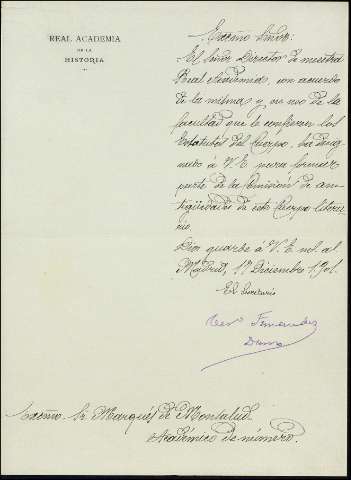 REAL ACADEMIA
DE LA
HISTORIA
Excmo Señor:
El Señor Director de nuestra
Real Academia, con acuerdo
de la misma y en uso de la
facultad que le confieren los
Estatutos del Cuerpo, ha desig
nado á V. E. para formar
parte de la Comisión de an-
tigüedades de este Cuerpo litera-
rio.
Dios guarde á V. E. m. a.
Madrid, 17 Diciembre 1901.
El Secretario
Fernandez
Duro
Excmo. Sr. Marqués de Monsalud.
Académico de número.